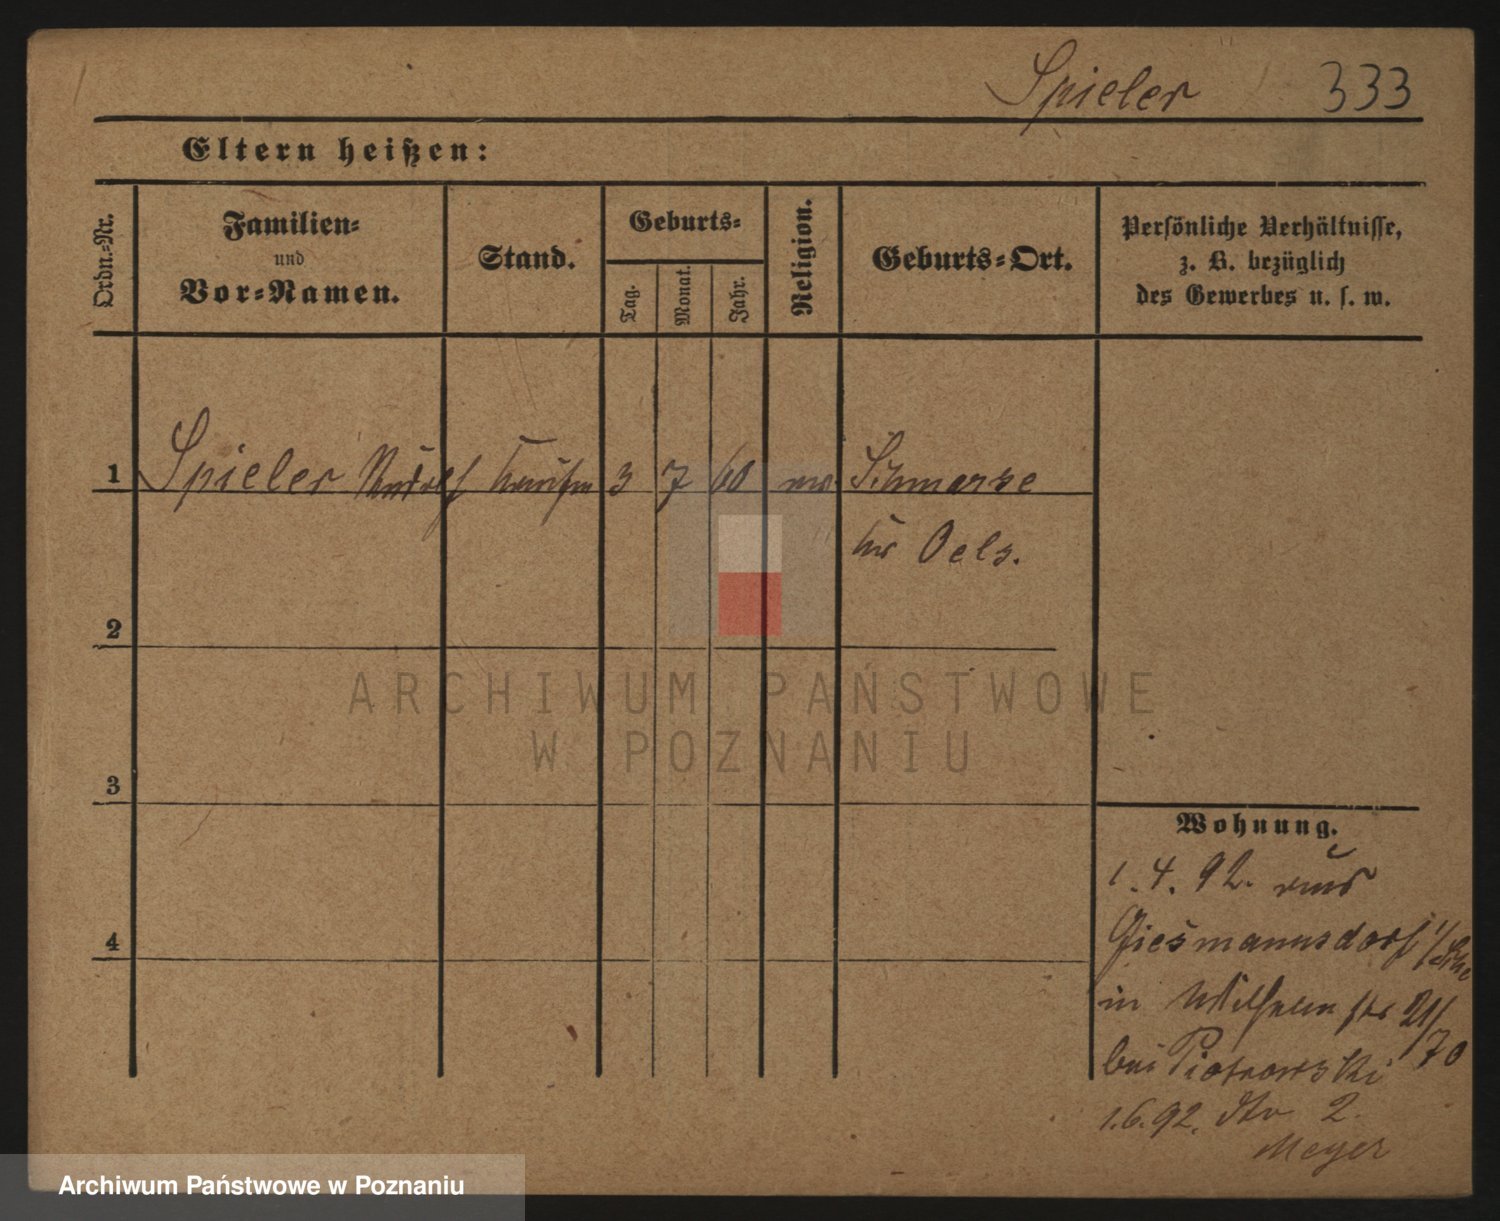 Spieler 333
Eltern heißen:
Ordn.=Nr.
Familien=
und
Vor=Namen.
Stand.
Geburts=
Tag.
Monat.
Jahr.
Religion.
Geburts=Ort.
Persönliche Verhältnisse,
z. B. bezüglich
des Gewerbes u. s. w.
1 Spieler Rudolf 3 7 60 Schmarse
Oels.
2
3
4
Wohnung.
1. 4. 92. aus
Giesmannsdorf
in Wilhelm str 21/70
bei Piotrowski
1.6.92. 2.
Meyer
ARCHIWUM PAŃSTWOWE
W POZNANIU
Archiwum Państwowe w Poznaniu